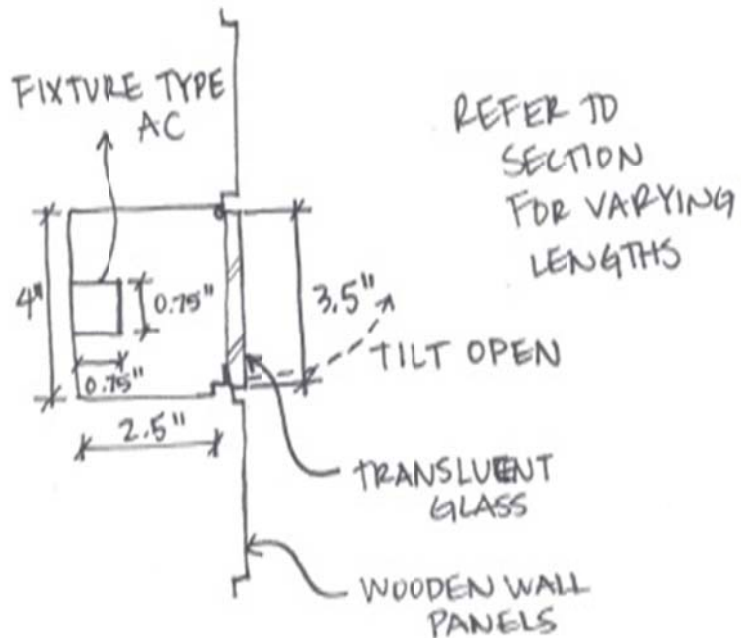 FIXTURE TYPE
AC
REFER TO
SECTION
FOR VARYING
LENGTHS
4"
0.75"
0.75"
3.5"
TILT OPEN
2.5"
TRANSLUENT
GLASS
WOODEN WALL
PANELS